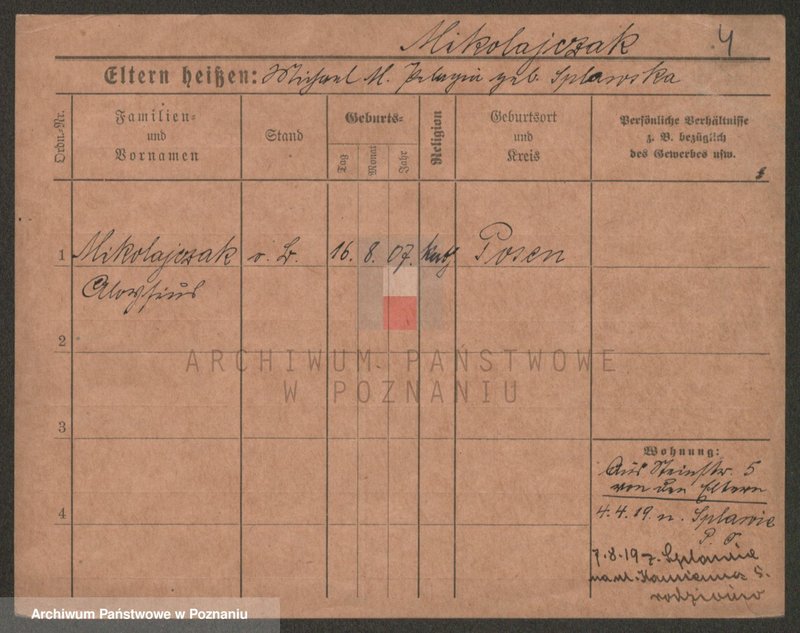 Mikolajczak 4
Eltern heißen: Michael M. Pelagia geb. Splawska
Ordn.-Nr.
Familien- und Vornamen
Stand
Geburts-
Tag
Monat
Jahr
Religion
Geburtsort und Kreis
Persönliche Verhältnisse
z. B. bezüglich
des Gewerbes usw.
1 Mikolajczak o. B. 16. 8. 07. kath Posen
Aloysius
2
3
4
Wohnung:
Aus Steinstr. 5
von den Eltern
4.4.19 n. Splawie
P. O.
7.8.19 z Splawie
na ul. 8.
ARCHIWUM PAŃSTWOWE
W POZNANIU
Archiwum Państwowe w Poznaniu